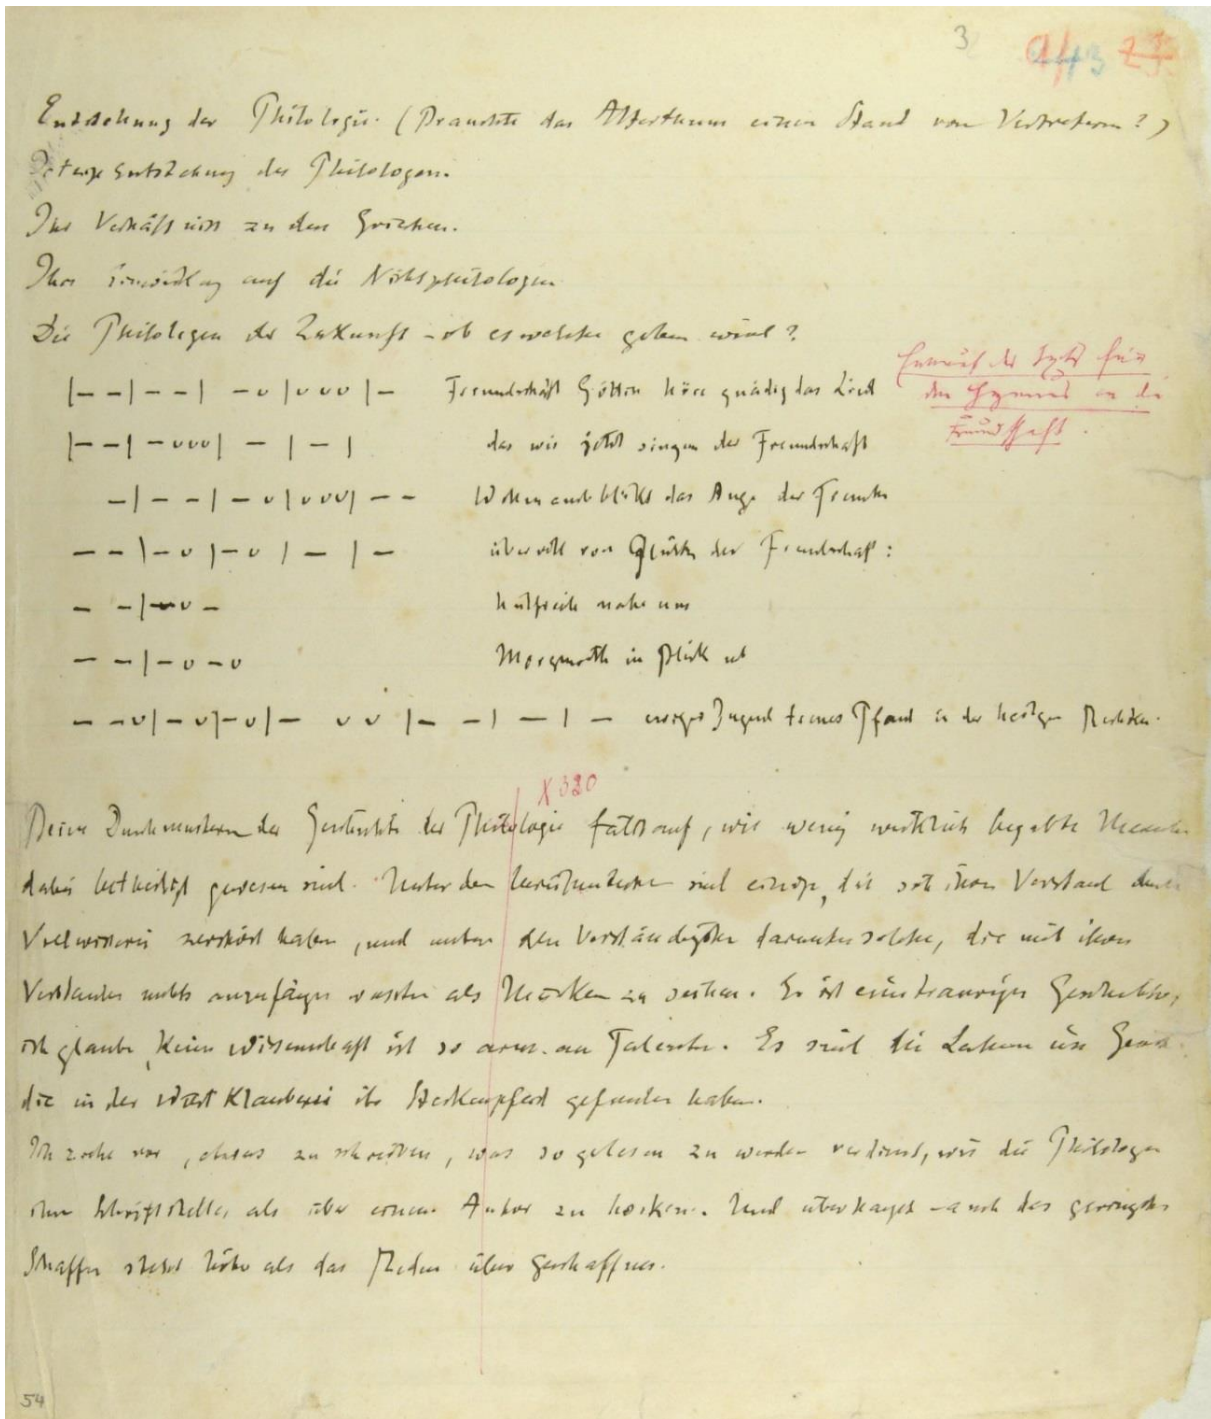 3
43 23
Entstehung der Philologie. (Brauchte das Alterthum einen Stand von Vertretern?)
Jetzige Entstehung des Philologen.
Ihr Verhältniss zu den Griechen.
Ihre Einwirkung auf die Nichtphilologen
Die Philologen der Zukunft – ob es welche geben wird?
Entwurf des Texts für
|– –|– –| –ᴗ|ᴗᴗᴗ|– Freundschaft Göttin höre gnädig das Lied
den Hymnus an die
|– –| –ᴗᴗᴗ| – | – | das wir jetzt singen der Freundschaft
Freundschaft.
–| – –| –ᴗ|ᴗᴗᴗ| – – Wohin auch blickt das Auge der Freunde
– – |–ᴗ |–ᴗ | – | – übervoll vom Glücke der Freundschaft:
– –|–ᴗ – hülfreich nahe uns
– – |–ᴗ –ᴗ Morgenröthe im Blick und
– –ᴗ|–ᴗ|–ᴗ|– ᴗ ᴗ |– –| – | – ewiger Jugend treues Pfand in der heiligen Rechten.
X 320
Beim Durchmustern der Geschichte der Philologie fällt auf, wie wenig wirklich begabte Menschen
dabei betheiligt gewesen sind. Unter den berühmtesten sind einige, die sich ihren Verstand durch
Vielwisserei zerstört haben, und unter den Verständigsten darunter solche, die mit ihrem
Verstande nichts anzufangen wussten als Mücken zu seihen. Es ist eine traurige Geschichte,
ich glaube, keine Wissenschaft ist so arm an Talenten. Es sind die Lahmen im Geiste
die in der Wortklauberei ihr Steckenpferd gefunden haben.
Ich ziehe vor, etwas zu schreiben, was so gelesen zu werden verdient, wie die Philologen
ihre Schriftsteller, als über einem Autor zu hocken. Und überhaupt – auch das geringste
Schaffen steht höher als das Reden über Geschaffnes.
54